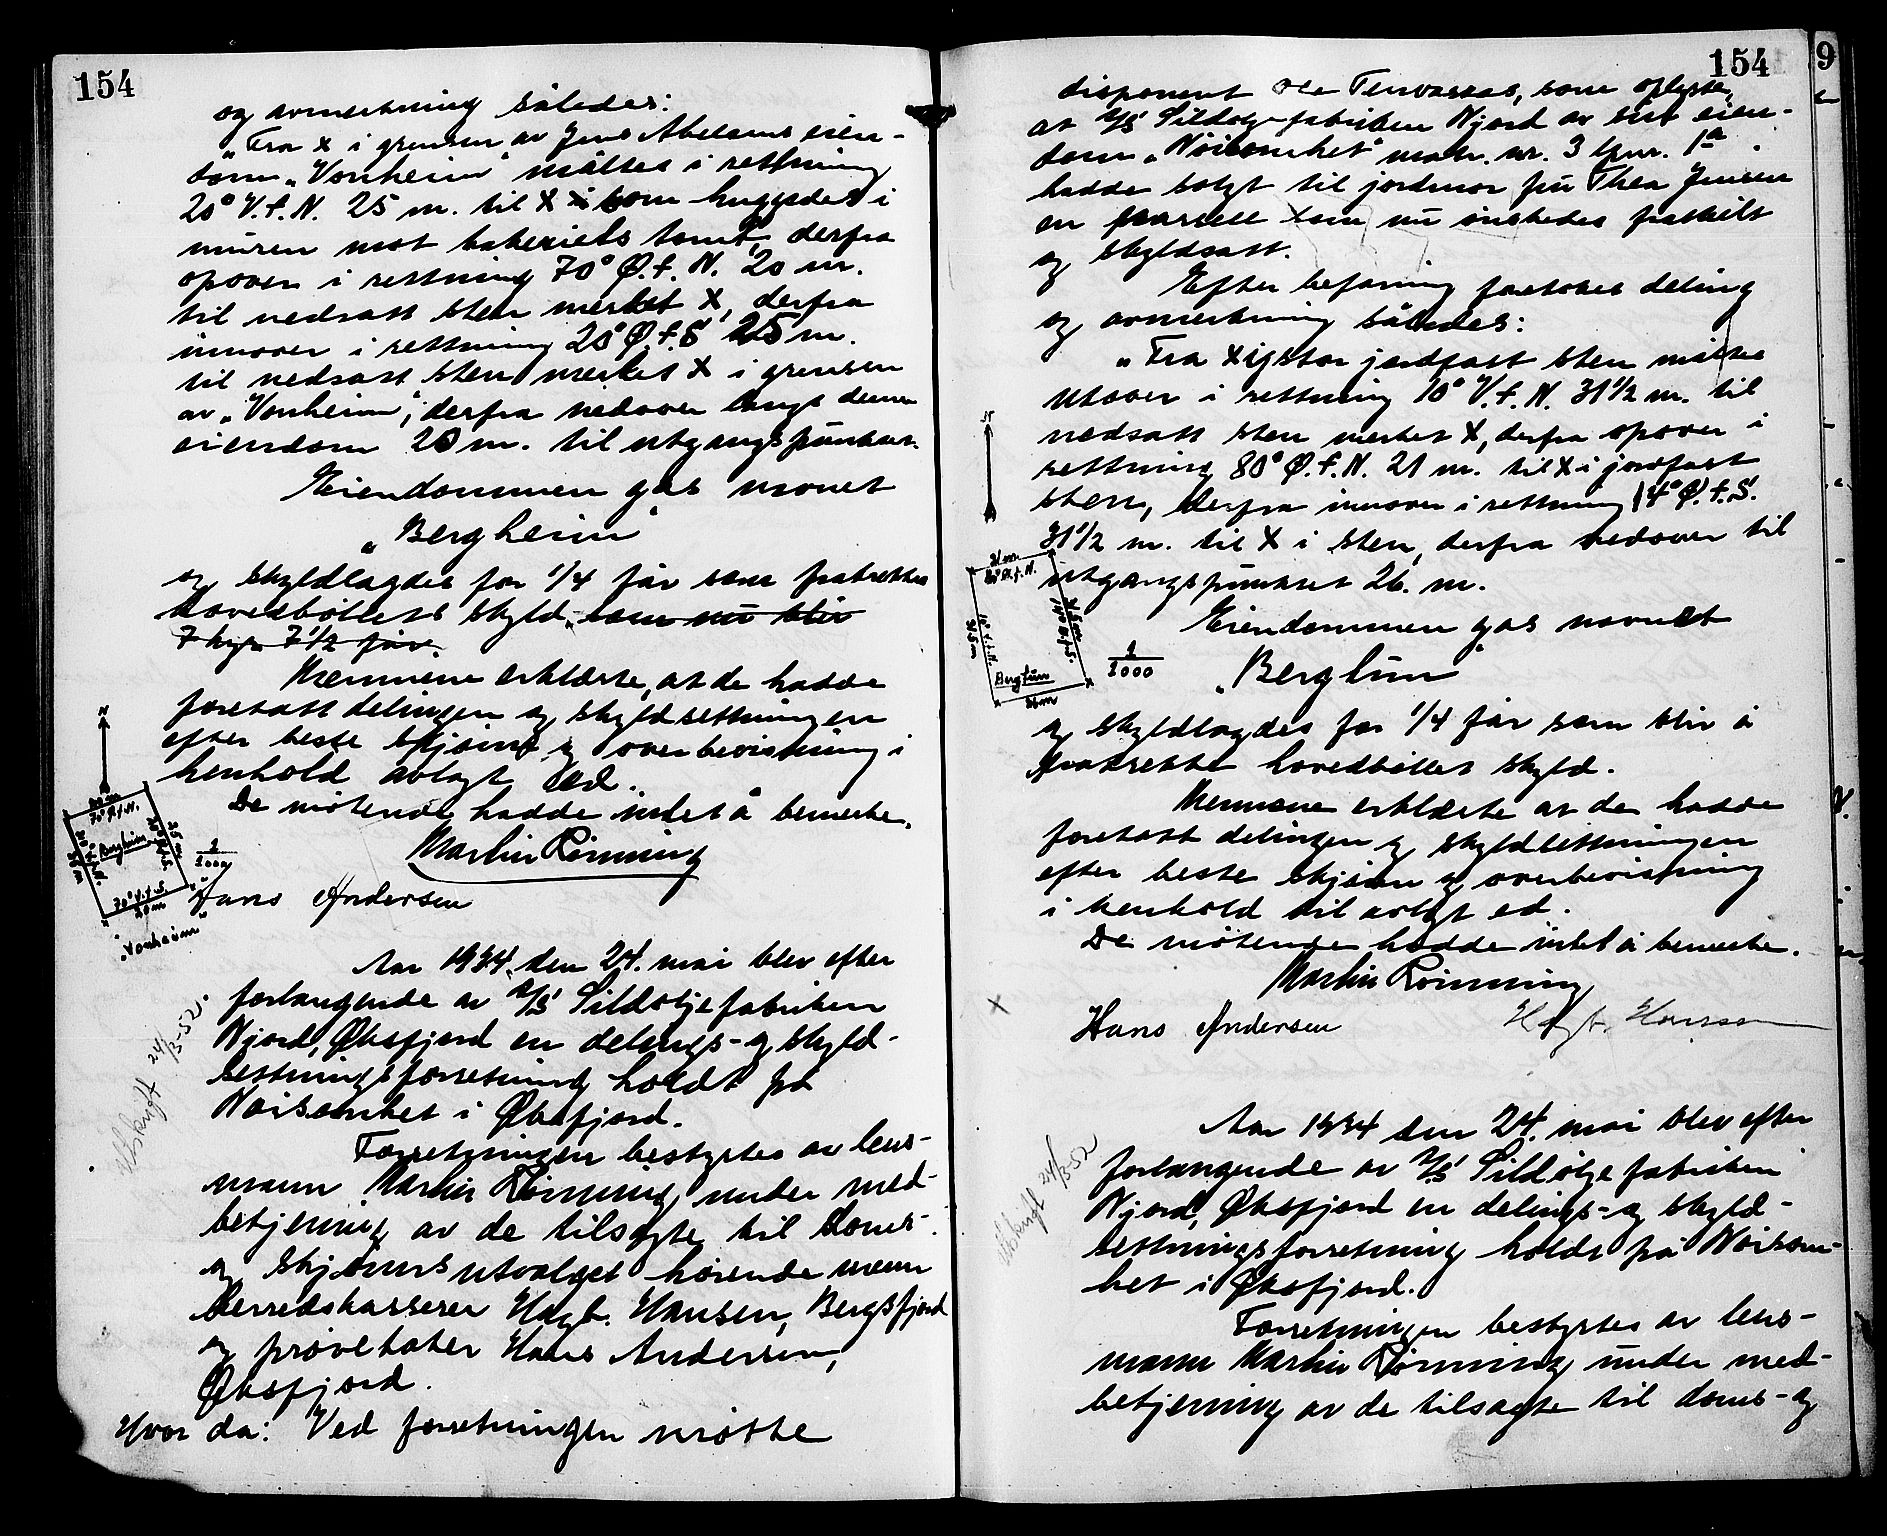 154
og avmerkning således:
"Fra x i grensen av Jens Abelsens eien-
dom "Vonheim" måltes i rettning
20° V.f.N. 25 m. til x som huggedes i
muren mot bakeriets tomt, derfra
opover i rettning 70° Ø.f.N. 20 m.
til nedsatt sten merket x, derfra
innover i rettning 20° Ø.f.S 25 m.
til nedsatt sten merket x i grensen
av "Vonheim", derfra nedover langs denne
eiendom 20 m. til utgangspunktet.
Eiendommen gås navnet
"Bergheim"
og skyldlagdes for 1/4 før som fratrekkes
hovedbøllets skyld, som nu blir
7 1/2 før.
Mennene erklærte, at de hadde
foretatt delingen og skyldsettningen
efter beste skjønn og overbevisning i
henhold avlagt ed.
De møtende hadde intet å bemerke.
Martin Rønning
Hans Andersen
N
20 m
70° Ø.f.N.
25 m
20° Ø.f.S.
Bergheim
70° V.f.S.
20 m
1/1000
"Vonheim"
Aar 1934 den 24. mai blev efter
forlangende av A/S Sildoljefabriken
Njord, Øksfjord en delings- og skyld-
settningsforretning holdt på
Nøisomhet i Øksfjord.
Utskrift 24/3-52.
Forretningen bestyrtes av lens-
mann Martin Rønning under med-
betjening av de tilsagte til doms-
og skjønnsutvalget hørende menn
herredskasserer Hagb. Hansen, Bergsfjord
og prøvetaker Hans Andersen,
Øksfjord.
Hvor da: Ved forretningen møtte
154
9
disponent Ole som oplyste,
at A/S Sildoljefabriken Njord av sin eien-
dom "Nøisomhet" matr. nr. 3 lpnr. 1a
hadde solgt til jordmor fru Thea Jensen
en parsell som nu ønskedes fraskilt
og skyldsatt.
Efter befaring foretokes deling
og avmerkning således:
"Fra x i stor jordfast sten måltes
utover i rettning 10° V.f.N. 31 1/2 m. til
nedsatt sten merket x, derfra opover i
rettning 80° Ø.f.N. 21 m. til x i jordfast
sten, derfra innover i rettning 14° Ø.f.S.
31 1/2 m. til x i sten, derfra nedover til
utgangspunktet 26 m.
Eiendommen gås navnet
"Berglun"
og skyldlagdes for 1/4 før som blir å
fratrekke hovedbøllets skyld.
N
21 m
80° Ø.f.N.
31.5 m
14° Ø.f.S.
10° V.f.N.
31.5 m
Berglun
26 m
1/1000
Mennene erklærte at de hadde
foretatt delingen og skyldsettningen
efter beste skjønn og overbevisning
i henhold til avlagt ed.
De møtende hadde intet å bemerke.
Martin Rønning
Hans Andersen Hagb. Hansen
x
Aar 1934 den 24. mai blev efter
forlangende av A/S Sildolje fabriken
Njord, Øksfjord en delings- og skyld-
settningsforretning holdt på Nøisom-
het i Øksfjord.
Utskrift 24/3-52
Forretningen bestyrtes av lens-
mann Martin Rønning under med-
betjening av de tilsagte til doms- og